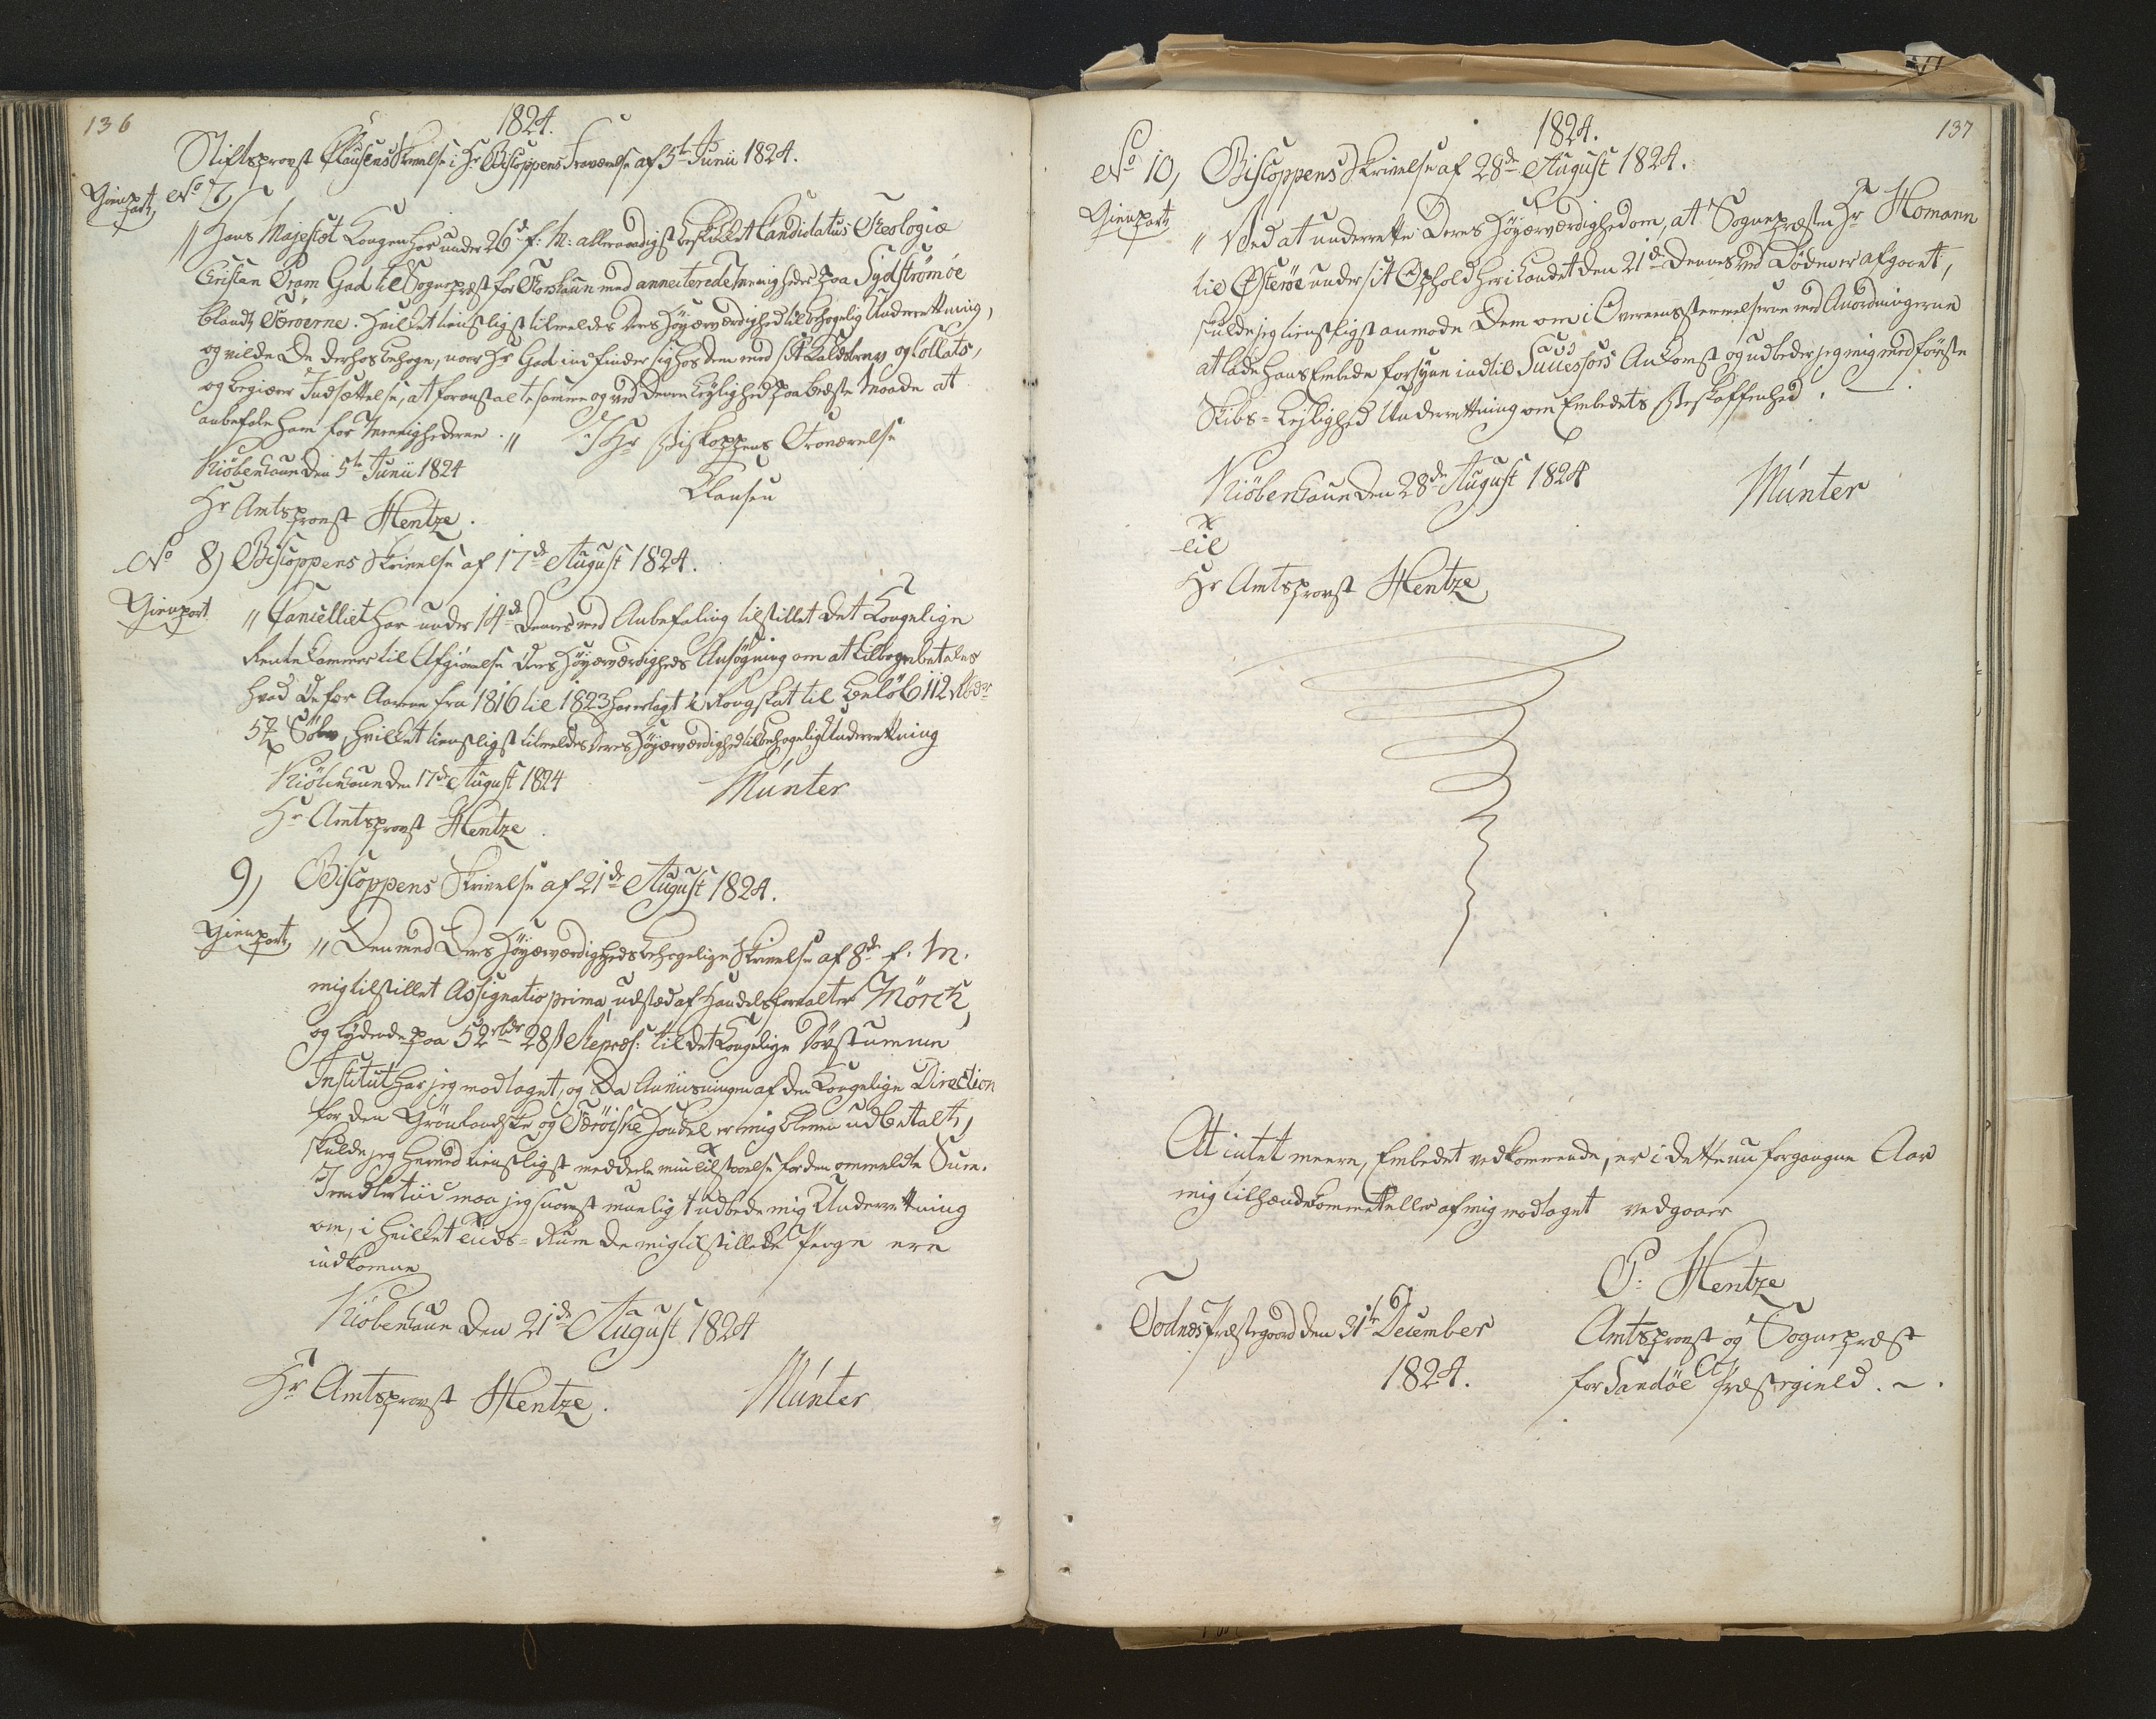 136
1824.
Stiftsprovst Clausens Skrivelse i Hr Biscoppens Fraværelse af 5te Junii 1824.
Gienpart, No 7,
" Hans Majestæt Kongen har under 26d f: M: allernaadigst beskikket Candidatus Theologiæ
Cristian Pram Gad til Sognepræst for Thorshaun med annecterede Menigheder paa Sydströmöe
blandt Færöerne. Hvilket tienstligst tilmeldes Deres Höyærværdighed til behagelig Underretning,
og vilde De derhos behage, naar Hr Gad indfinder sig hos dem med sit Kaldsbrev og Collats,
og begierer Indsættelse, at foranstalte samme og ved denne Leylighed paa bedste Maade at
anbefale ham for Menighederne. " I Hr Biskoppens Fraværelse
Kiöbenhaun den 5te Junii 1824
Clausen
Hr Amtsprovst Hentze.
No 8) Biscoppens Skrivelse af 17de August 1824.
Gienpart " Cancelliet har under 14de Dennes med Anbefaling tilstillet det Kongelige
Rentekammer til Afgiörelse Deres Höyærværdigheds Ansögning om at tilbagebetales
hvad De for Aarene fra 1816 til 1823 har erlagt i Rangskat til Belöb 112 Rbdr
52 Sölv, hvilket tienstligst tilmeldes Deres Höyærværdighed til behagelig Underretning
Kiöbenhaun den 17de August 1824
Münter
Hr Amtsprovst Hentze.
9) Biscoppens Skrivelse af 21de August 1824.
Gienpart, " Den med Deres Höyærværdigheds behagelige Skrivelse af 8de f. M.
mig tilstillet Assignatio prima, udstæd af Handelsforvalter Mörch,
og lydende paa 52 rbdr 28 s Repræs: til det Kongelige Dövstumme
Institut har jeg modtaget, og da Anviisningen af den Kongelige Direction
for den Grönlandske og Færöiske Handel er mig bleven udbetalt,
skulde jeg herved tienstligst meddele min Tilstaaelse for den ommeldte Sum.
Imidlertiid maa jeg snarest muelig udbede mig Underretning
om, i hvilket Tids-Rum de mig tilstillede Penge ere
indkomne
Kiöbenhaun den 21de August 1824
Hr Amtsprovst Hentze.
Münter
137
1824.
No 10, Biscoppens Skrivelse af 28de August 1824.
Gienpart, " Ved at underrette Deres Höyærværdighed om, at Sognepræsten Hr Homann
til Österöe under sit Ophold her i Landet den 21de Dennes ved Döden er afgaaet,
skulde jeg tienstligst anmode Dem om i Overeensstemmelse med Anordningerne
at lade hans Embede forsyne indtil Successors Ankomst og udbeder jeg mig med förste
Skibs-Leylighed Underretning om Embedets Beskaffenhed.
Kiöbenhaun den 28de August 1824
Münter
til
Hr Amtsprovst Hentze
At intet meere, Embedet vedkommende, er i dette nu forgangne Aar
mig tilhændekommet eller af mig modtaget vedgaaer
P: Hentze
Todnæs Præstegaard den 31te December
Amtsprovst og Sognepræst
1824.
for Sandöe Præstegield.